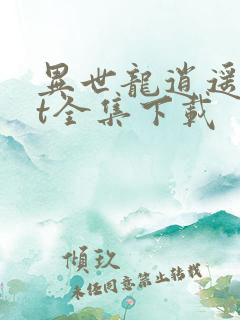 異世龍逍遥
t全集下載
傾玖
未经同意禁止转载